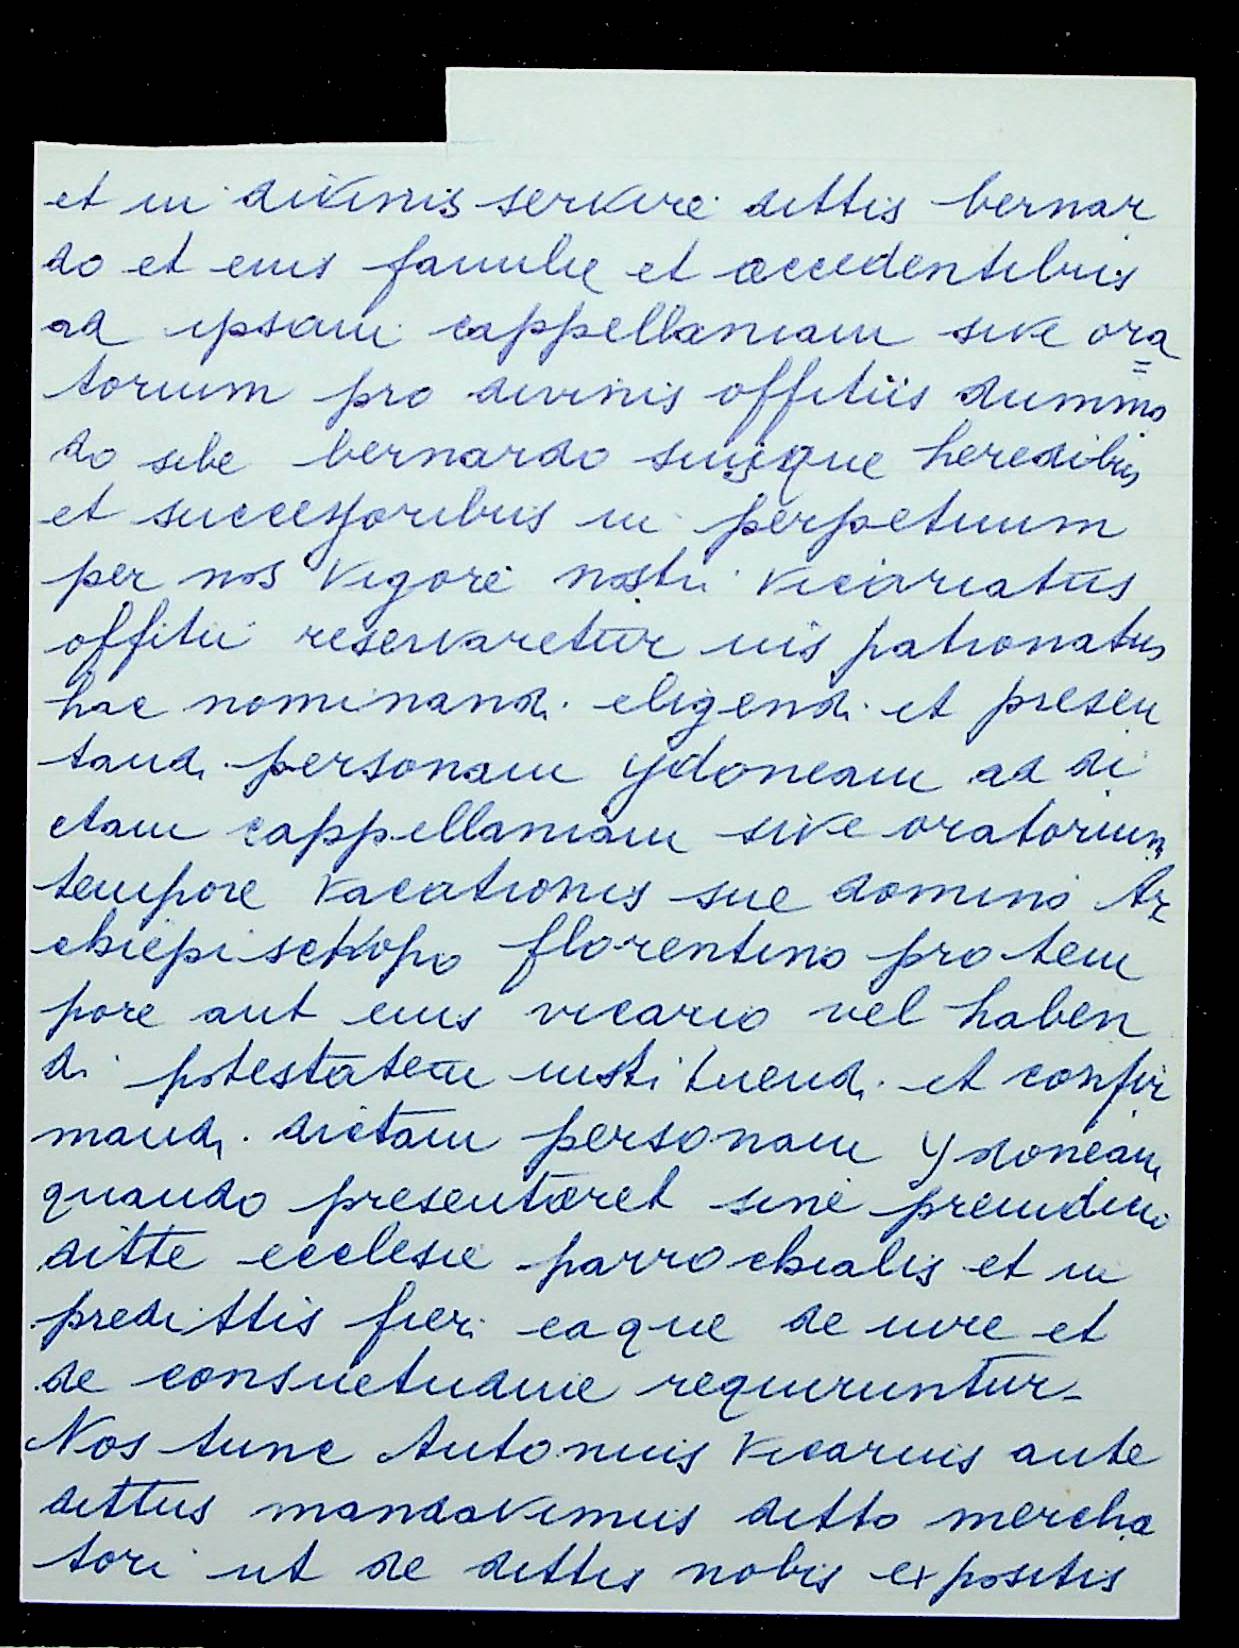 et in divinis servire dittis bernar
do et eius familie et accedentibus
ad ipsam cappellaniam sive ora=
torium pro divinis offitiis dummo
do sibe bernardo suisque heredibus
et successoribus in perpetuum
per nos vigore nostri vicariatus
offitii reservaretur ius patronatus
hac nominandi eligendi et presen
tandi personam ydoneam ad di
ctam cappellaniam sive oratorium
tempore vacationis sue domino Ar
chiepischopo florentino pro tem
pore aut eius vicario vel haben
di potestatem instituendi et confir
mandi dictam personam ydoneam
quando presentaret sine preiudicio
ditte ecclesie parrochialis et in
predittis fieri eaque de iure et
de consuetudine requiruntur-
Nos tunc Antonius vicarius ante
dittus mandavimus ditto mercha
tori ut de dittis nobis expositis